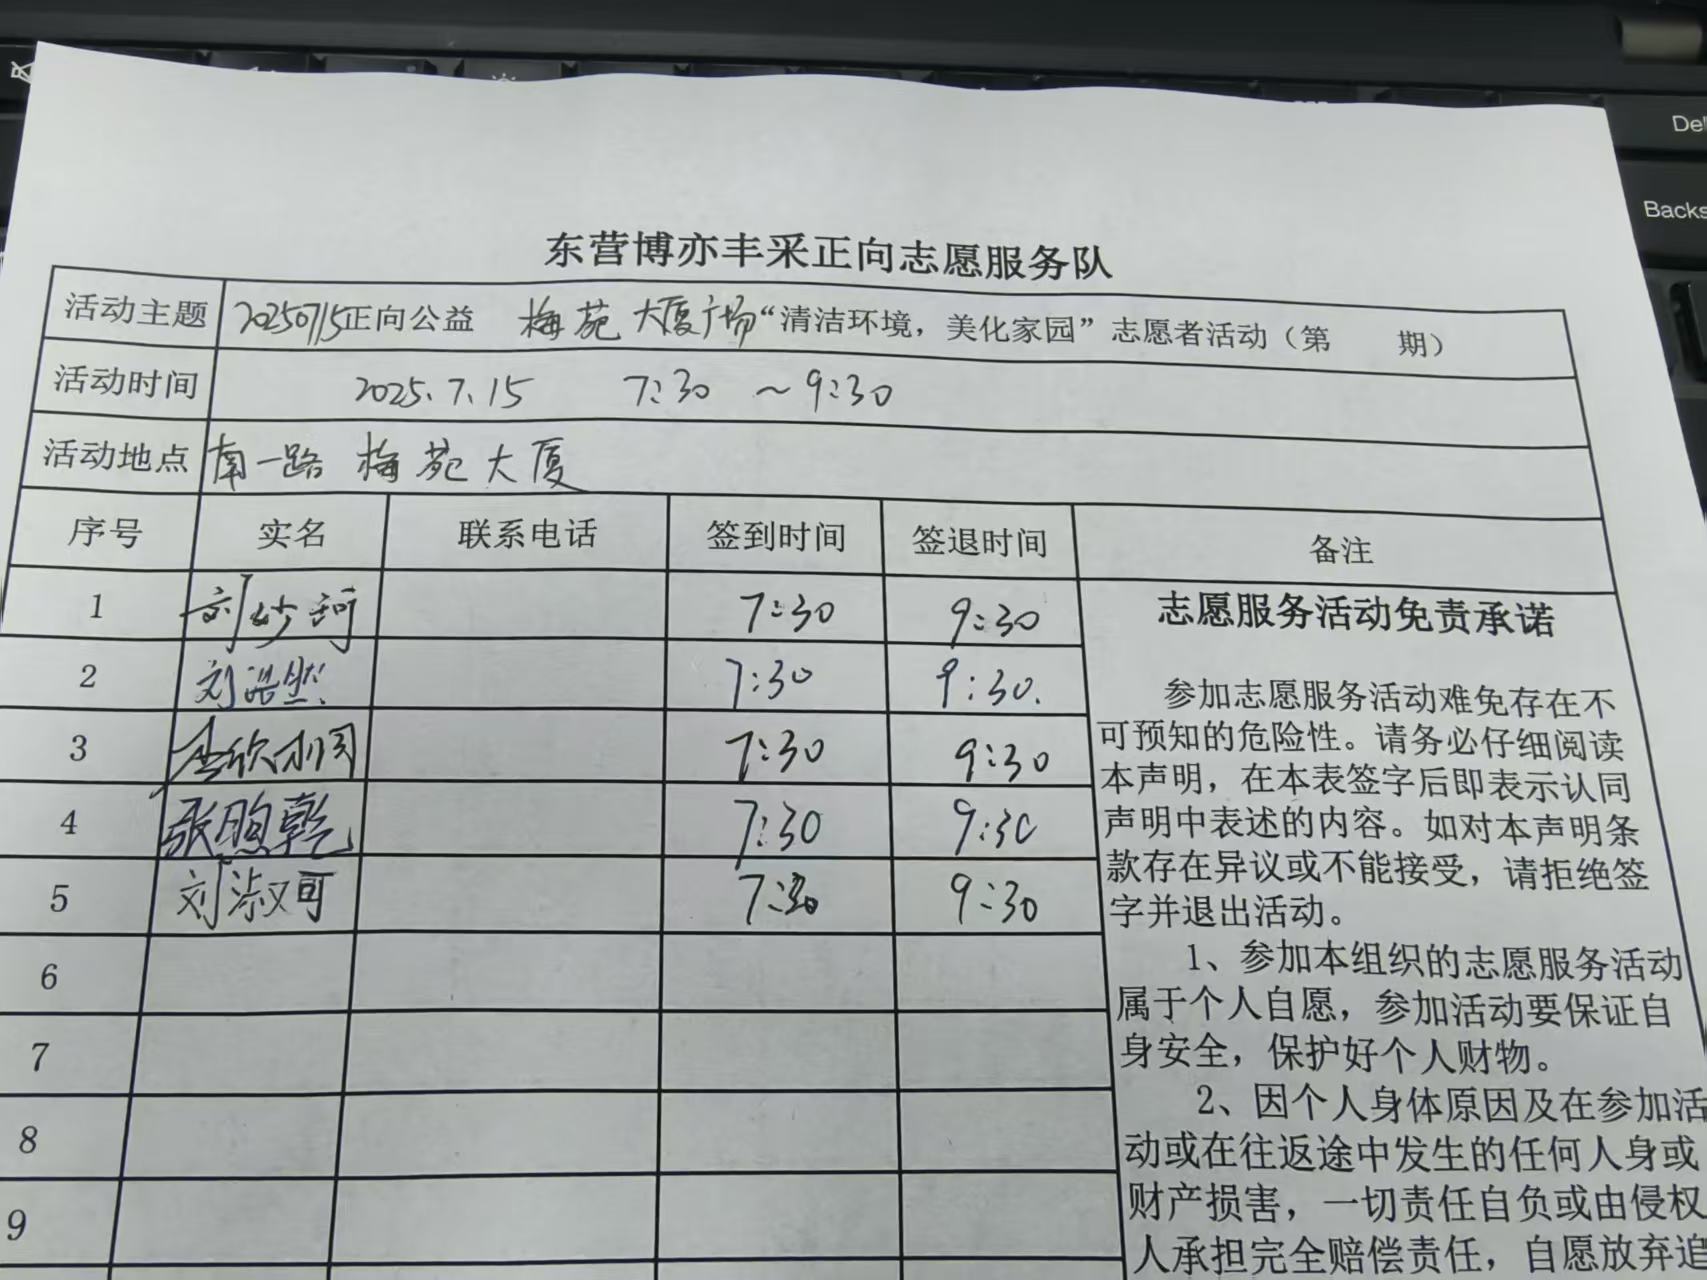 Del
Backs
东营博亦丰采正向志愿服务队
活动主题 20250715正向公益 梅苑大厦广场“清洁环境，美化家园”志愿者活动（第 期）
活动时间 2025.7.15 7:30 ~ 9:30
活动地点 南一路 梅苑大厦
序号 实名 联系电话 签到时间 签退时间 备注
1 刘妙珂 7:30 9:30
2 刘浩然 7:30 9:30.
3 7:30 9:30
4 张煦乾 7:30 9:30
5 刘淑可 7:30 9:30
6
7
8
9
志愿服务活动免责承诺
参加志愿服务活动难免存在不
可预知的危险性。请务必仔细阅读
本声明，在本表签字后即表示认同
声明中表述的内容。如对本声明条
款存在异议或不能接受，请拒绝签
字并退出活动。
1、参加本组织的志愿服务活动
属于个人自愿，参加活动要保证自
身安全，保护好个人财物。
2、因个人身体原因及在参加活
动或在往返途中发生的任何人身或
财产损害，一切责任自负或由侵权
人承担完全赔偿责任，自愿放弃追